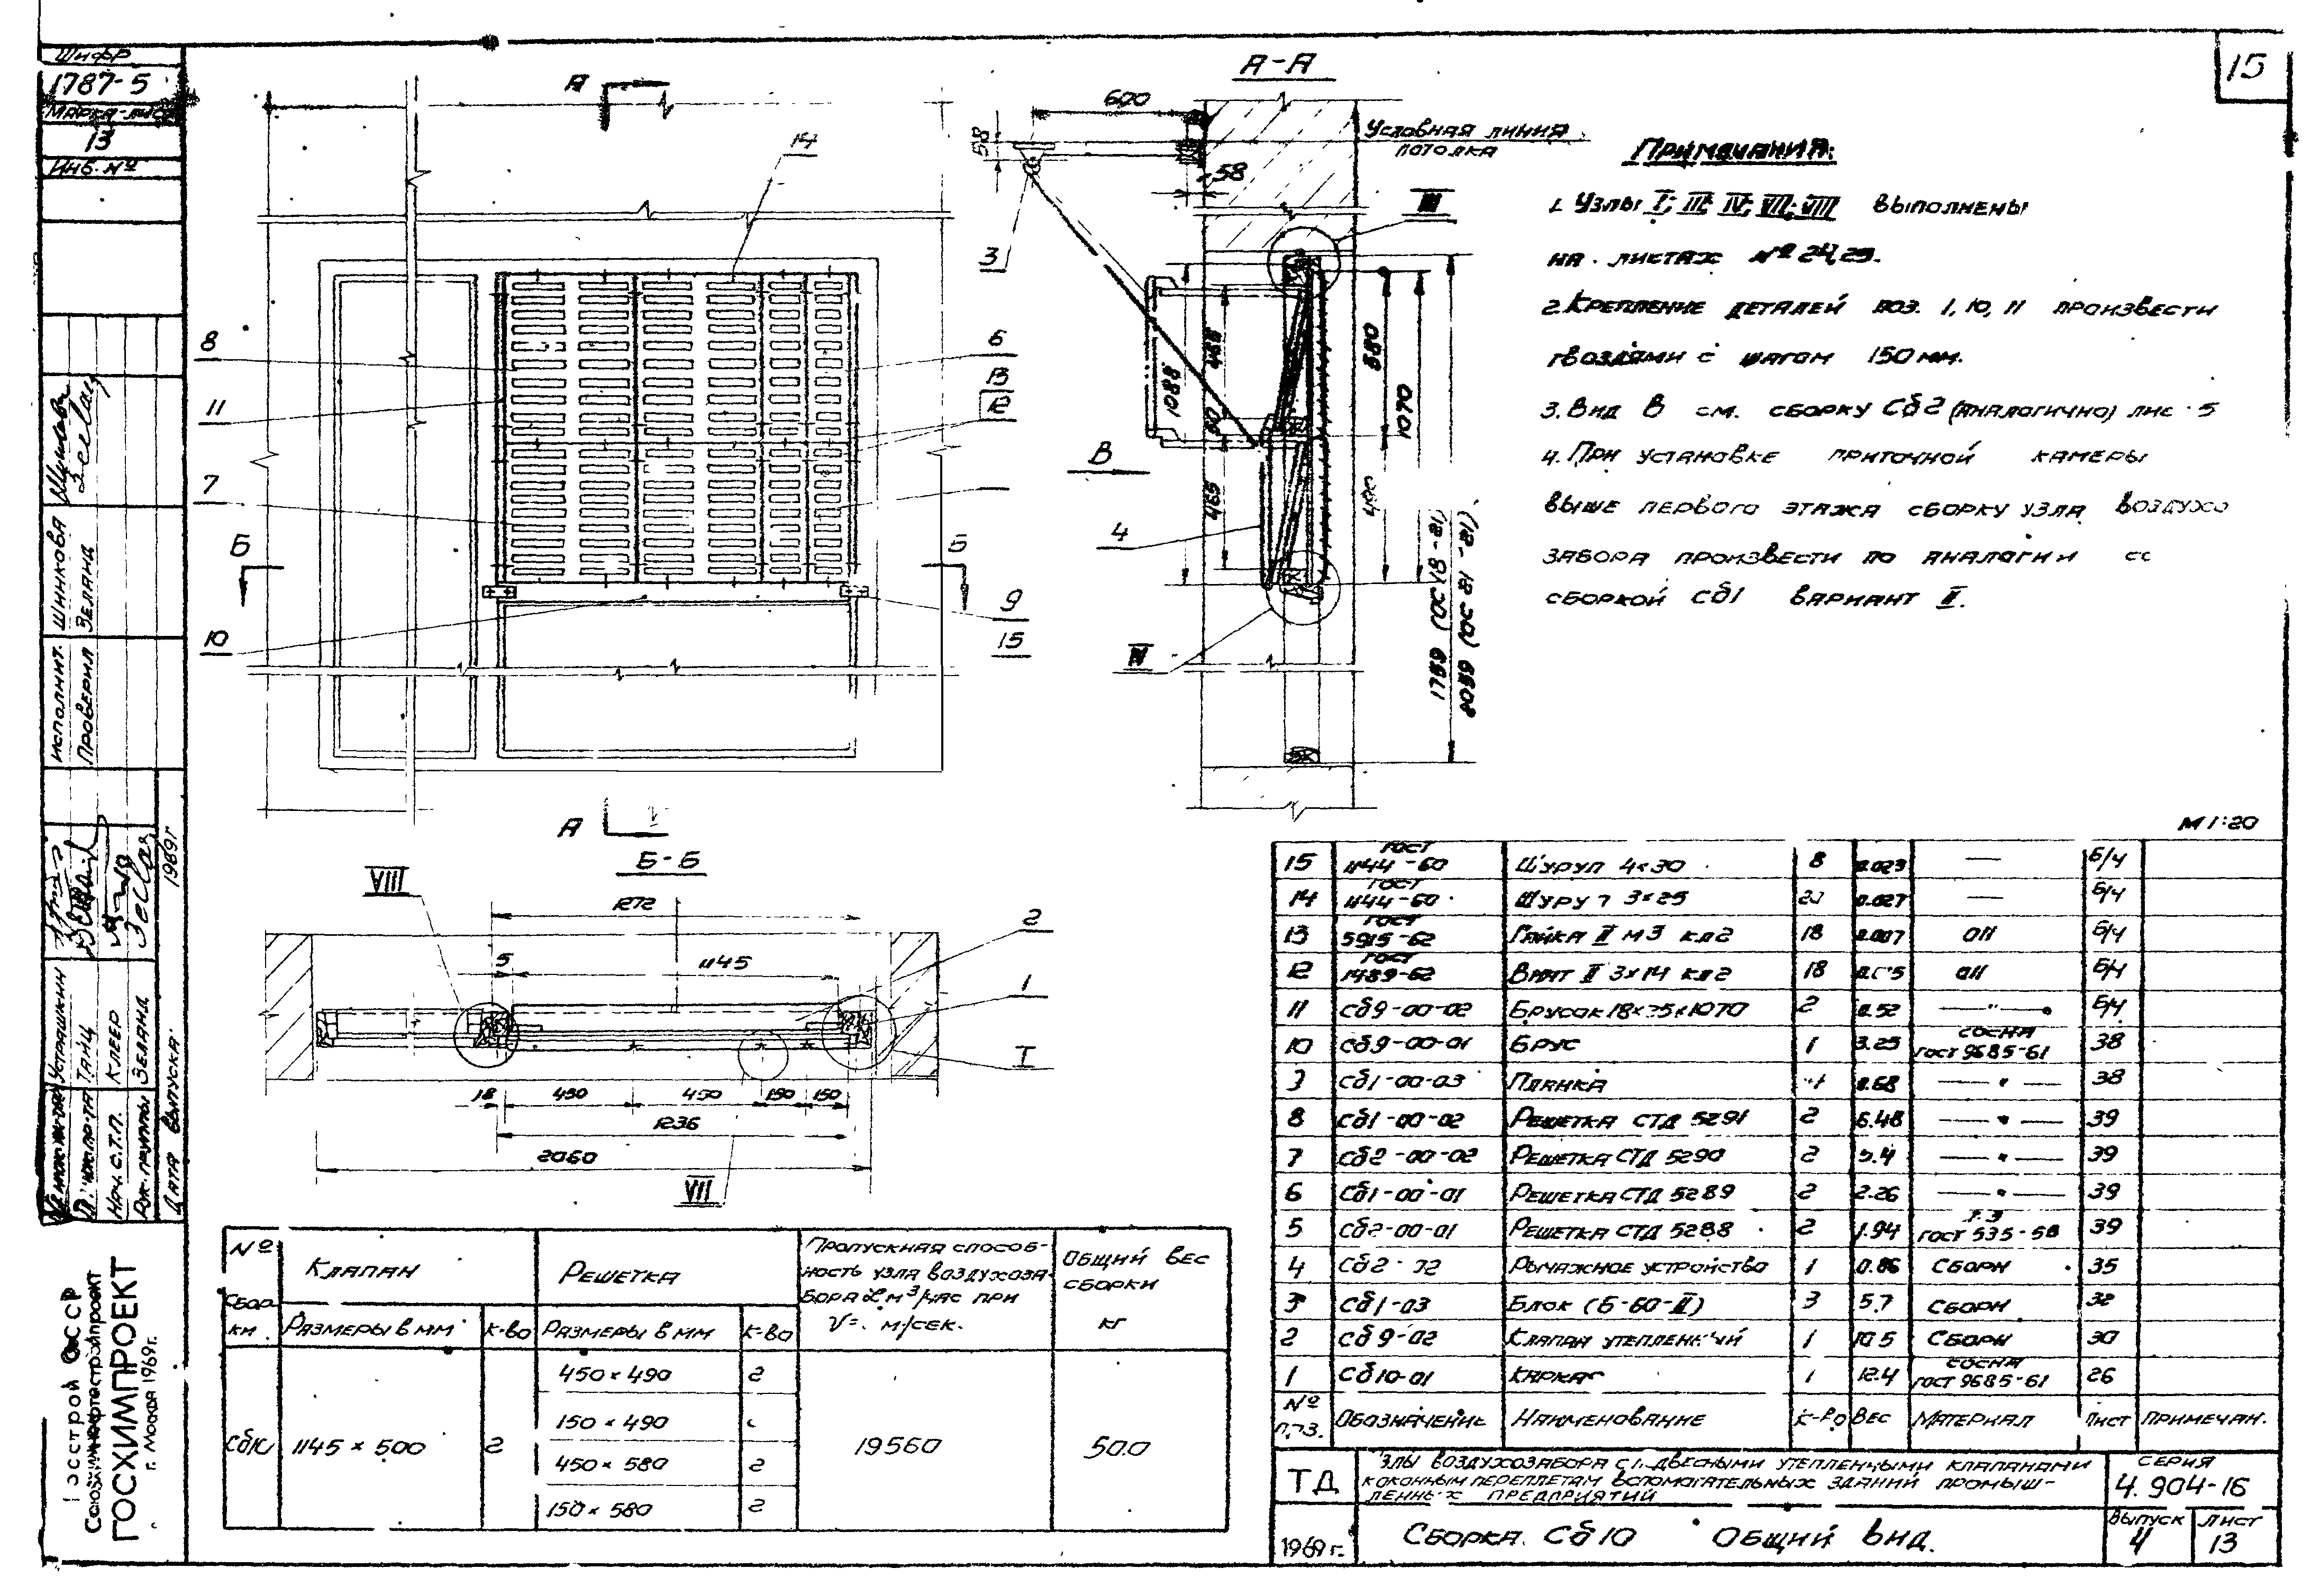 Шифр
1787-5
Марка-лист
13
Инв. №
15
А
А-А
600
58
58
Условная линия
потолка
14
3
III
8
6
11
13
12
7
Б
Б
9
10
15
1088
468
90
465
580
1070
1789 (ОС 18-12)
2099 (ОС 21-12)
В
4
IV
А
Примечания:
1. Узлы I; III; IV; VII; VIII выполнены
на листах № 24,25.
2. Крепление деталей поз. 1, 10, 11 произвести
гвоздями с шагом 150 мм.
3. Вид В см. сборку Сб2 (аналогично) лис 5
4. При установке приточной камеры
выше первого этажа сборку узла воздухо
забора произвести по аналогии со
сборкой Сб1 вариант II.
М 1:20
Б-Б
VIII
1272
2
5
1145
1
I
18
450
450
150
150
1236
2060
VII
исполнит. Шинкова
Проверил Зеланд
Устрашкин
Танц
Нач. С.Т.П. Клеер
Рук. группы Зеланд
Дата выпуска 1969г
Госстрой СССР
ГОСХИМПРОЕКТ
г. Москва 1969г.
№ сборки
Клапан
Решетка
Пропускная способ-
ность узла воздухоза-
бора L м³/час при
V= м/сек.
Общий вес
сборки
кг
Размеры в мм
к-во
Размеры в мм
к-во
Сб10
1145 × 500
2
450 × 490
2
150 × 490
450 × 580
2
150 × 580
2
19560
50.0
15 ГОСТ 1144-60 Шуруп 4×30 8 0.023 — б/ч
14 ГОСТ 1144-60 Шуруп 3×25 0.027 — б/ч
13 ГОСТ 5915-62 Гайка II М3 кл2 18 0.007 б/ч
12 ГОСТ 1489-62 Винт II 3×14 кл2 18 б/ч
11 Сб9-00-02 Брусок 18×35×1070 2 0.52 —"— б/ч
10 Сб9-00-01 Брус 1 3.25 сосна ГОСТ 9685-61 38
9 Сб1-00-03 Планка 0.68 —"— 38
8 Сб1-00-02 Решетка СТД 5291 2 6.48 —"— 39
7 Сб2-00-02 Решетка СТД 5290 2 5.4 —"— 39
6 Сб1-00-01 Решетка СТД 5289 2 2.26 —"— 39
5 Сб2-00-01 Решетка СТД 5288 2 1.94 ГОСТ 535-58 39
4 Сб2-02 Рычажное устройство 1 0.86 Сборн 35
3 Сб1-03 Блок (Б-60-II) 3 5.7 Сборн 32
2 Сб9-02 Клапан утепленный 1 10.5 Сборн 30
1 Сб10-01 Каркас 1 12.4 сосна ГОСТ 9685-61 26
№ поз. Обозначение Наименование К-во Вес Материал Лист Примечан.
ТД
Узлы воздухозабора с подвесными утепленными клапанами
к оконным переплетам вспомогательных зданий промыш-
ленных предприятий
Серия
4.904-16
1969 г.
Сборка Сб10 Общий вид.
Выпуск
4
Лист
13